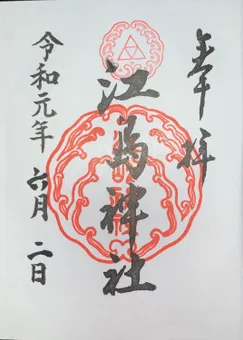 奉拝
江島神社
令和元年 六月 二日